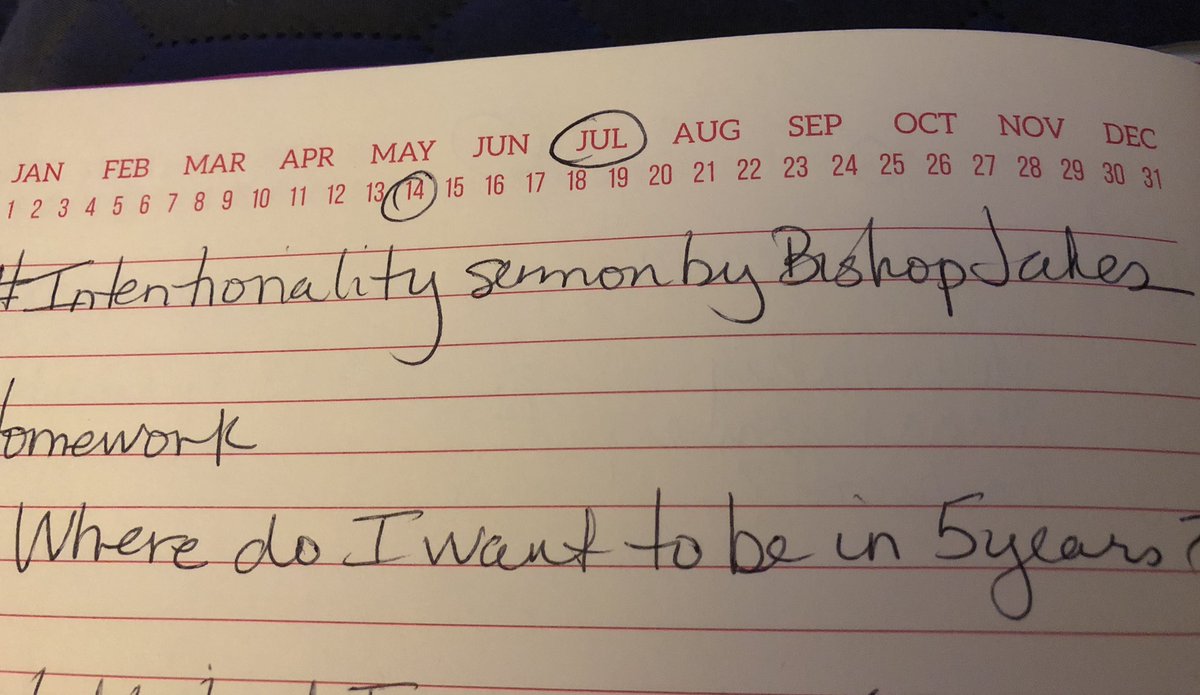 JAN FEB MAR APR MAY JUN JUL AUG SEP OCT NOV DEC
1 2 3 4 5 6 7 8 9 10 11 12 13 14 15 16 17 18 19 20 21 22 23 24 25 26 27 28 29 30 31
#Intentionality sermon by Bishop Jakes
Homework
Where do I want to be in 5 years?